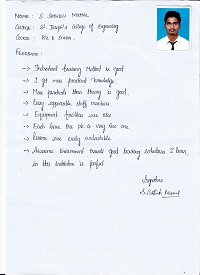 NAME : S. SATHISH NIRMAL
COLLEGE : St. Joseph's College of Engineering
COURSE : PLC & SCADA
FEEDBACK :
-> Individual Training Method is good.
-> I get more practical knowledge.
-> More practicals than theory is good.
-> Easy approachable staff members
-> Equipment facilities are nice
-> Each have One PC is very nice one.
-> Lessons are easily understandable
-> Awesome Environment towards good learning salvation I learn
in this Institution is perfect.
Signature
S. Sathish Nirmal